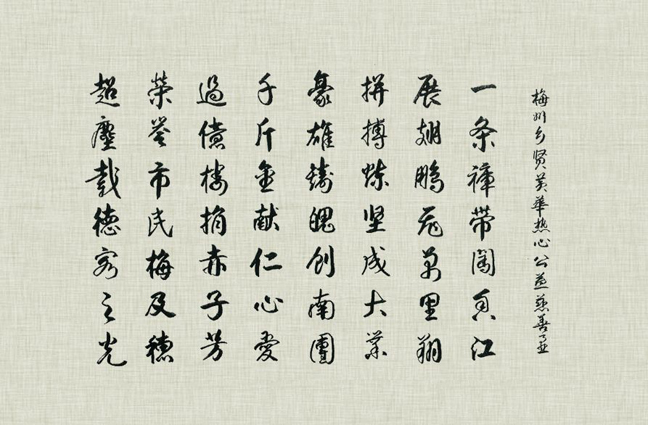 梅州乡贤黄华热心公益慈善事业
一条裤带闯香江
展翅鹏飞万里翔
拼搏炼坚成大业
豪雄铸魄创南国
千斤金献仁心爱
过亿楼捐赤子芳
荣誉市民梅及穗
超尘载德客之光